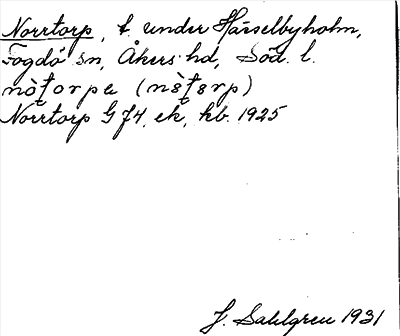 Norrtorp, t. under Härselbyholm,
Fogdö sn, Åkers hd, Söd. l.
Norrtorp G J4, ek, kb. 1925
J. Sahlgren 1931